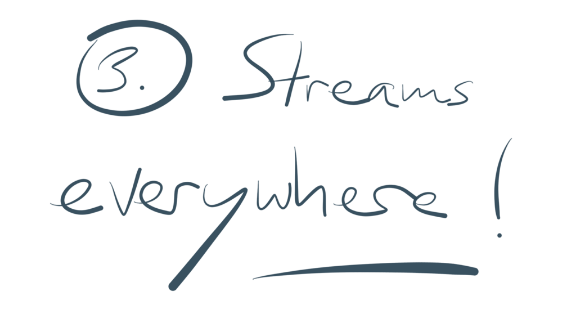 3. Streams
everywhere!